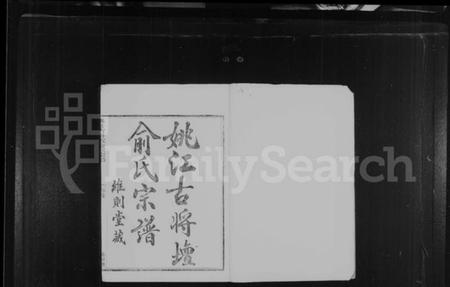 姚江古將壇
俞氏宗譜
維則堂藏
FamilySearch